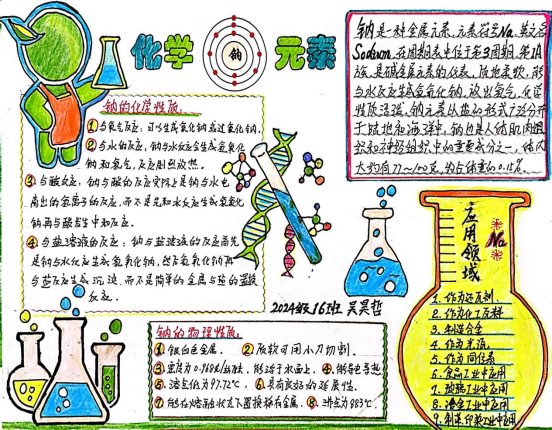 化学 钠 元素
钠是一种金属元素,元素符号Na,英文名
Sodium,在周期表中位于第3周期,第IA
族,是碱金属元素的代表,质地柔软,能
与水反应生成氢氧化钠,放出氢气,化学
性质活泼,钠元素以盐的形式广泛分布
于陆地和海洋中,钠也是人体肌肉
组织和神经组织中的重要成分之一,体内
钠的化学性质:
①与氧气反应,可以生成氧化钠或过氧化钠.
②与水的反应,钠与水反应会生成氢氧化
钠和氢气,反应剧烈放热.
③与酸反应,钠与酸的反应实际上是钠与水电
离出的氢离子的反应,而不是先和水反应生成氢氧化
钠再与酸发生中和反应.
④与盐溶液的反应:钠与盐溶液的反应首先
是钠与水化应生成氢氧化钠,然后氢氧化钠再
与盐反应生成沉淀,而不是简单的金属与盐的置换
反应.
2024级16班 吴昊哲
应用领域
Na
1. 作为还原剂.
2. 作为化工原料
3. 制造合金
4. 作为光源.
5. 作为同位素
6. 食品工业中应用
7. 玻璃工业中应用
8. 冶金工业中应用
9. 制革、印染工业中应用
钠的物理性质:
①银白色金属. ②质软可用小刀切割.
③密度为0.968g/cm³,能浮于水面上. ④能够导热
⑤熔点仅为97.72℃. ⑥具有良好的延展性.
⑦能在熔融状态下置换稀有金属. ⑧沸点为883℃.